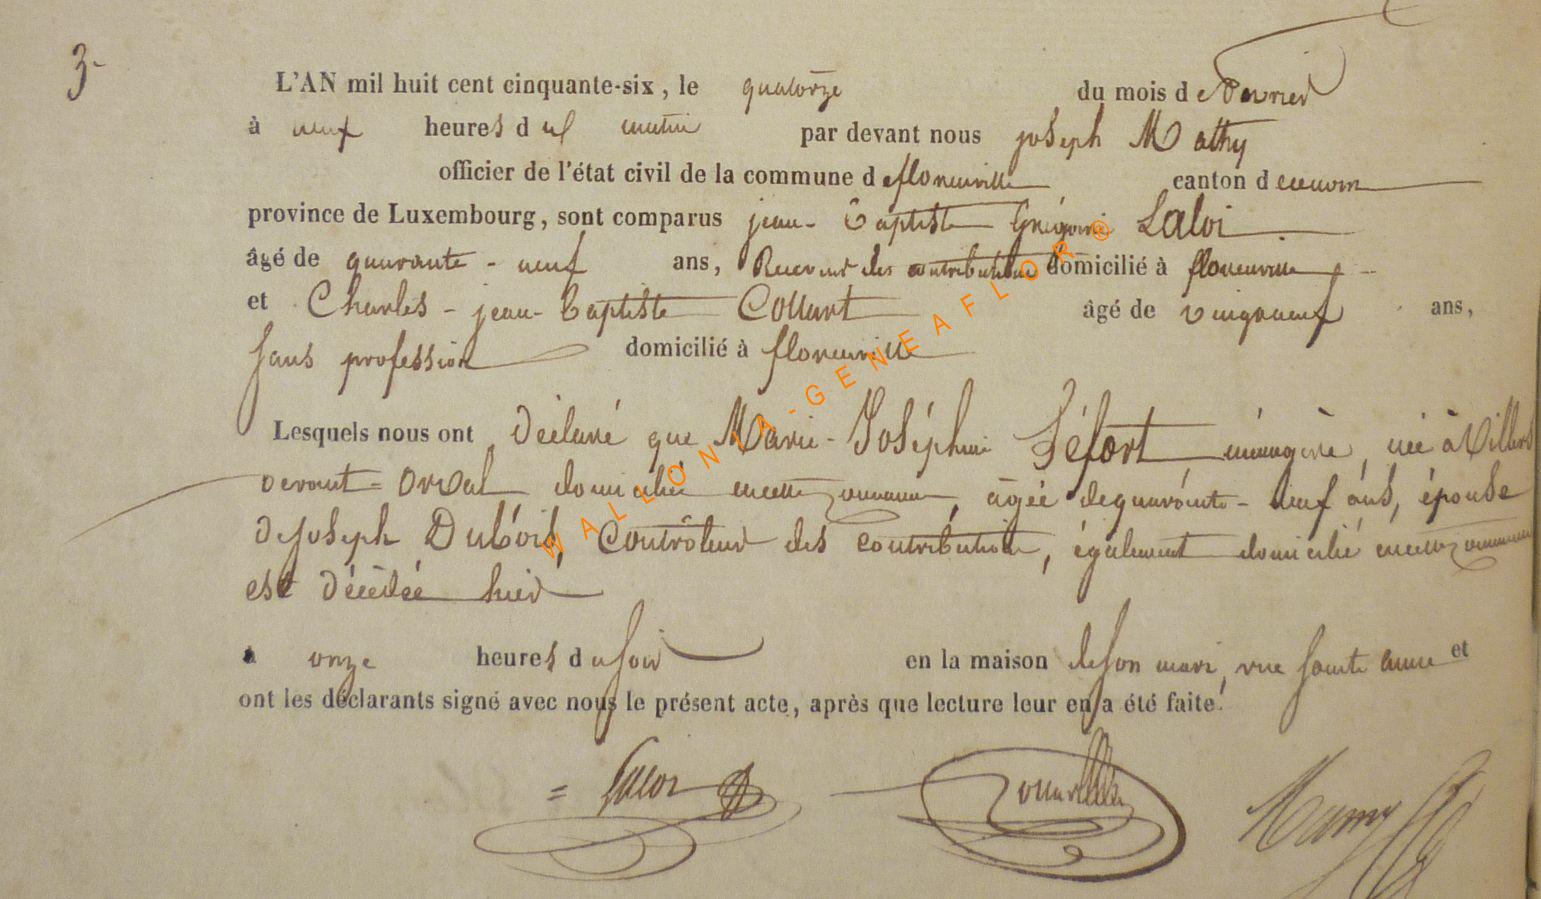 3-
L'AN mil huit cent cinquante-six, le quatorze du mois de février
à neuf heures du matin par devant nous joseph Mathy
officier de l'état civil de la commune de florenville canton d
province de Luxembourg, sont comparus jean-Baptiste Grégoire Laloi
âgé de quarante-neuf ans, Receveur des contributions domicilié à florenville
et Charles-jean-baptiste Collart âgé de vingtneuf ans,
sans profession domicilié à florenville
Lesquels nous ont déclaré que Marie-Joséphine Féfort ménagère, née à Villers
devant-Orval domiciliée encette commune, âgée dequarante-neuf ans, épouse
deJoseph Dubois, Contrôleur des contributions, également domicilié encette commune
est décédée hier
à onze heures du soir en la maison deson mari, rue sainte anne et
ont les déclarants signé avec nous le présent acte, après que lecture leur en a été faite.
WALLONIA-GENEAFLOR®